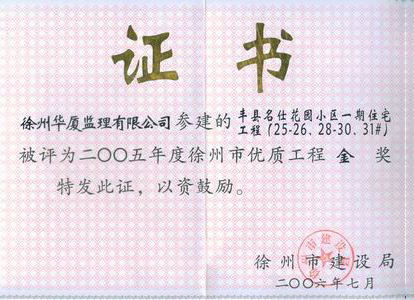 证书
徐州华厦监理有限公司参建的丰县名仕花园小区一期住宅
工程(25-26、28-30、31#)
被评为二〇〇五年度徐州市优质工程 金 奖
特发此证，以资鼓励。
徐州市建设局
二〇〇六年七月